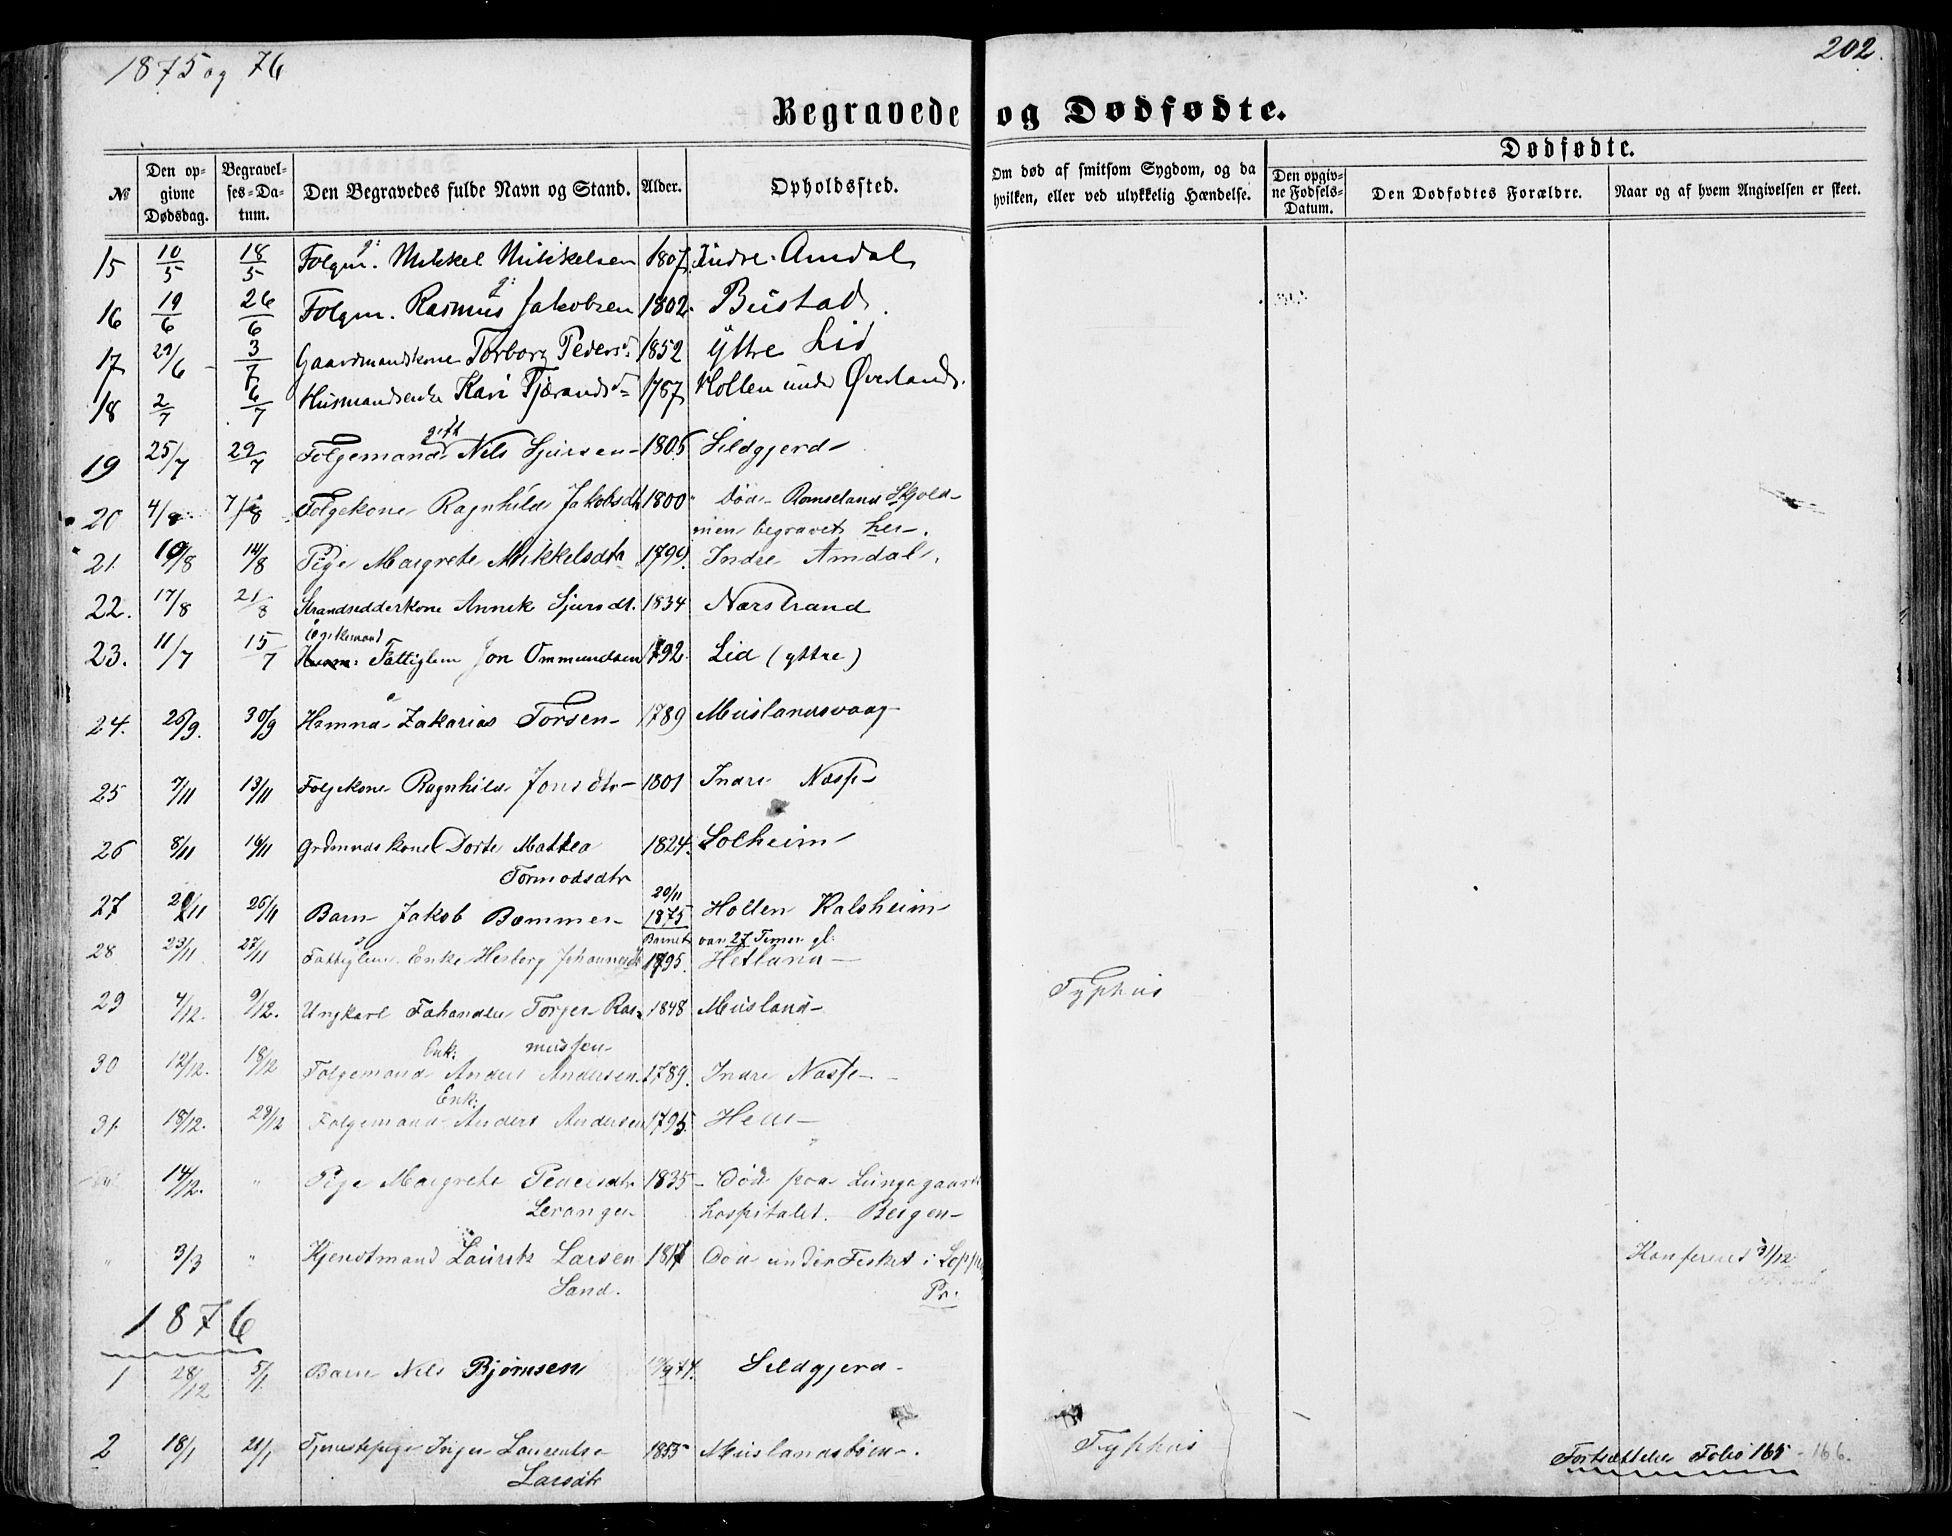 1875 og 76
202.
Begravede og Dødfødte.
№
Den opgivne Dødsdag.
Begravelses-Datum.
Den Begravedes fulde Navn og Stand.
Alder.
Opholdssted.
Om død af smitsom Sygdom, og da hvilken, eller ved ulykkelig Hændelse.
Dødfødte.
Den opgivne Fødsels-Datum.
Den Dødfødtes Forældre.
Naar og af hvem Angivelsen er skeet.
15 10/5 18/5 Folgm. g: Mikkel Mikkelsen 1807 Indre Amdal
16 19/6 26/6 Folgm. g: Rasmus Jakobsen 1802. Bustad.
17 29/6 3/7 Gaardmandskone Torborg Pedersd: 1852 Yttre Lid
18 2/7 6/7 Husmandsenke Kari Tjærandsd= 1787 Holten under Øverland.
19 25/7 29/7 Folgemand gift Nils Sjursen 1806 Sildgjerd
20 4/8 7/8 Folgekone Ragnhild Jakobsdtr 1800 Død Romseland Skjold
men begravet her.
21. 10/8 14/8 Pige Margrete Mikkelsdtr 1799. Indre Amdal.
22. 17/8 21/8 Strandsidderkone Annik Sjursdt. 1834 Nærstrand
23. 11/7 15/7 Fattiglem Jon Ommundsen 1792. Lid (yttre)
24. 26/9. 30/9 Zakarias Torsen 1789 Muslandsvaag
25 7/11 13/11 Folgekone Ragnhild Jonsdtr 1801 Indre Næsse
26 8/11 14/11 Grdmndskone Dorte Mattea 1824. Solheim
Tormodsdtr
27 26/11 Barn Jakob Bommer 20/11 1875 Holten Kalsheim
Barnet var 27 Timer gl:
28 23/11 27/11 Fattiglem Enke Hesborg Johannesdt 1795. Hetland
29 4/12. 9/12. Ungkarl Torger Ras= 1848 Musland Typhus
mussen
30 12/12. 18/12 Folgemand Enk: Anders Andersen 1789. Indre Næsse
31. 18/12. 29/12 Folgemand Enk: Anders Andersen 1795. Hem
14/12. " Pige Margrete Pedersdtr 1835 Død paa Lungegaards
Leranger hospitalet. Bergen
" 3/3 " Laurits Larsen 1817 Død under Fisket i
Sand. Pr.
Konfereret 31/12
1876
1 28/12 5/1. Barn Nils Bjørnsen Sildgjerd
2 18/1 21/1 Tjenestepige Inger Laurentse 1855 Muslandsbøen. Typhus
Larsdtr
Fortsættelse Folio 165 - 166.